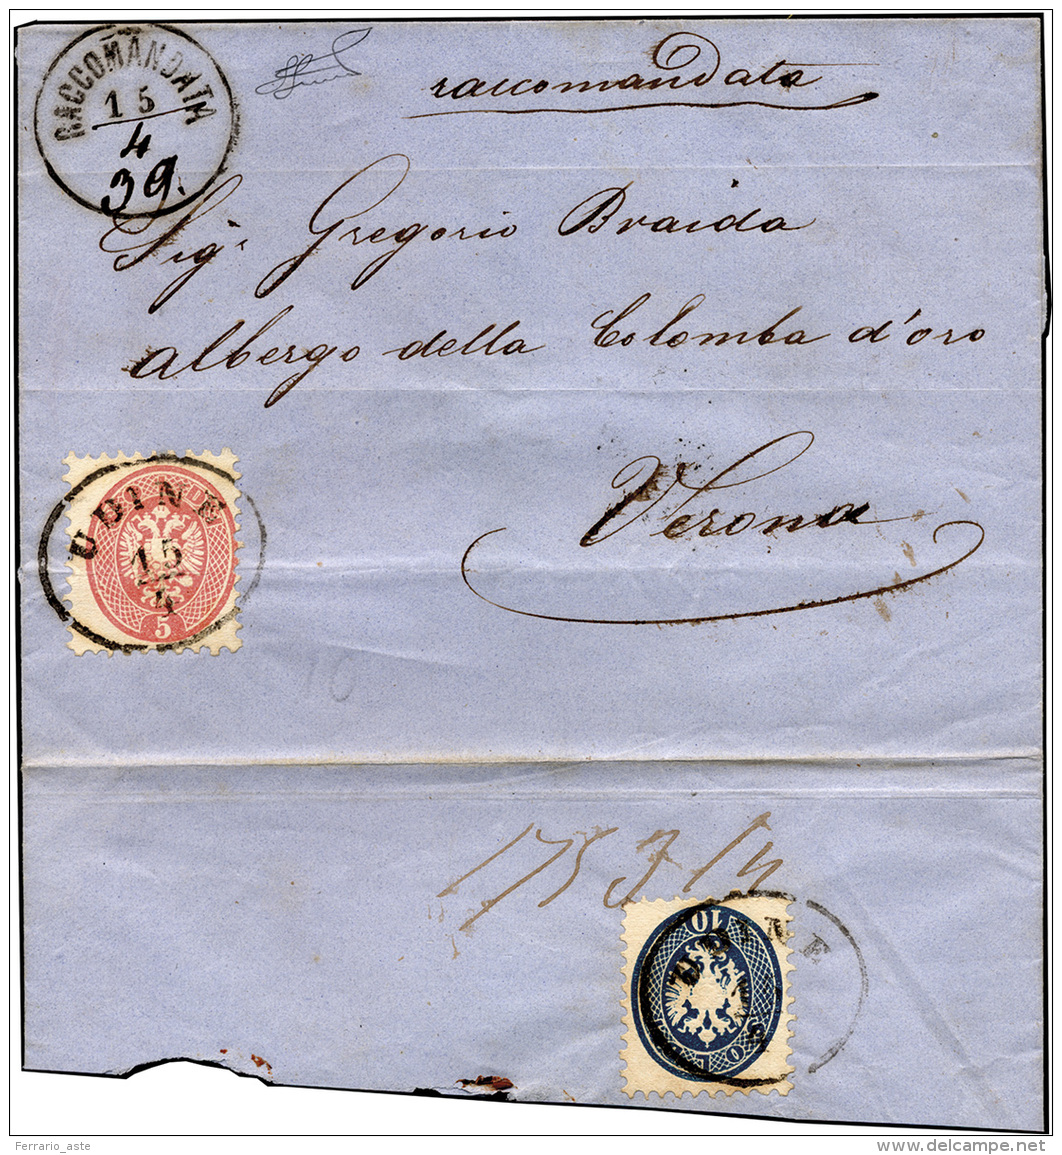 RACCOMANDATA
15
4
39.
raccomandata
Sig.r Gregorio Braida
albergo della Colomba d'oro
Verona
UDINE
15
4
5
10
1753/4
10
UDINE
Ferrario_aste
www.delcampe.net